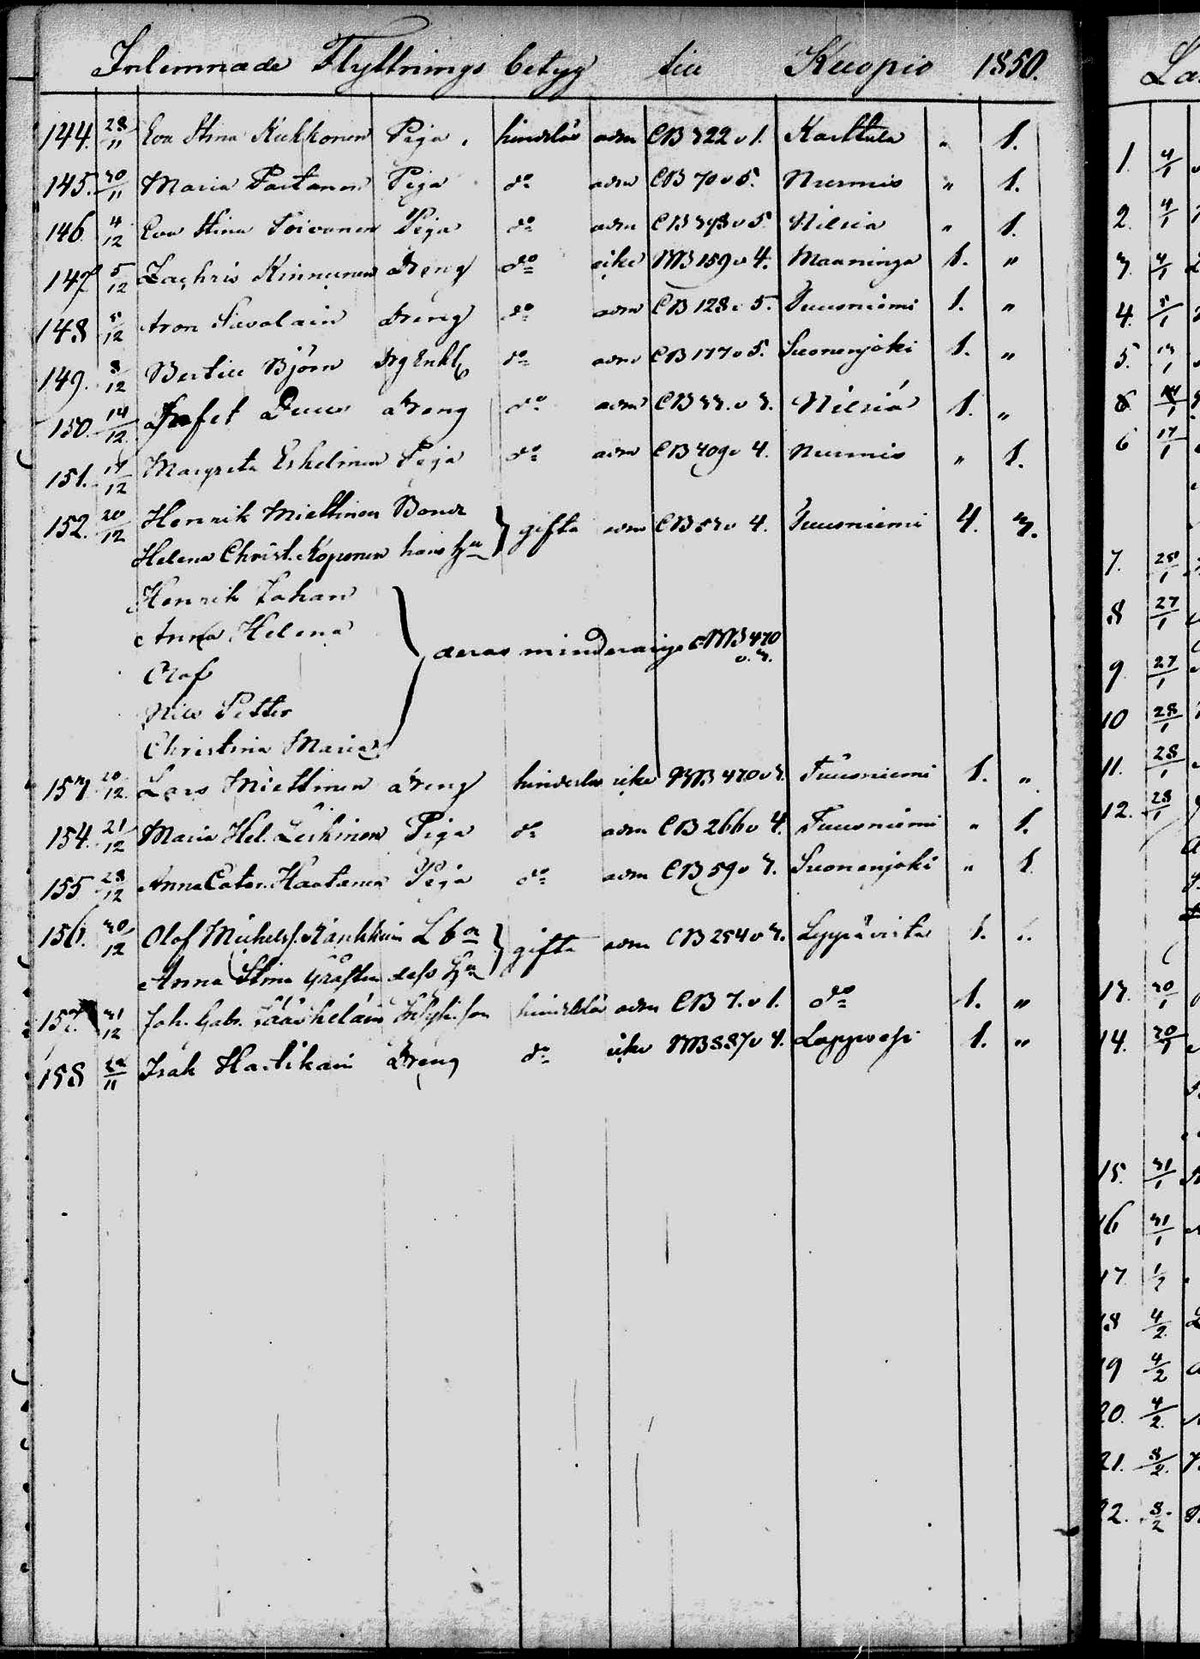 Inlemnade Flyttnings betyg till Kuopio 1850.
144. 28/11 Eva Stina Kukkonen Piga. hinderlös adm CB 322 v 1. Karttula " 1.
145. 30/11 Maria Partanen Piga do adm CB 70 v 5. Nurmis " 1.
146. 4/12 Eva Stina Toivanen Piga do adm CB 398 v 5. Nilsiä " 1.
147. 5/12 Zachris Kinnunen dreng do icke MB 159 v 4. Maaninga 1. "
148. 5/12 Aron Savolain dreng do adm CB 128 v 5. Juusniemi 1. "
149. 8/12 Bertill Björn do adm CB 177 v 5. Suonenjoki 1. "
150. 14/12 Jafet dreng do adm CB Nilsiä 1. "
151. 17/12 Margreta Eskelinen Piga do adm CB 409 v 4. Nurmis " 1.
152. 20/12 Henrik Miettinen Bonde
Helena Christ. Koponen hans hu } gifta adm CB v 4. Juusniemi 4. 3.
Henrik Johan
Anna Helena
Olof
Nils Petter
Christina Maria } deras minderårige MB 470 v. 3.
153. 20/12 Lars Miettinen dreng hinderlös icke MB 470 v 3. Juusniemi 1. "
154. 21/12 Maria Hel. Leskinen Piga do adm CB 266 v 4. Juusniemi " 1.
155 28/12 Anna Catar. Haatanen Piga do adm CB 59 v 3. Suonenjoki " 1
156. 30/12 Olof Michelss. Lbn
Anna Stina dess hu } gifta adm CB 254 v 3. Leppävirta 1. 1.
157. 31/12 Joh. Gabr. Sääskeläin hinderlös adm CB 7. v 1. do 1. "
158 28/11 Isak Hartikain dreng do icke MB 887 v 4. Lappvesi 1. "
La
1. 4/1
2. 4/1
3. 4/1
4. 5/1
5.
6 17/1
7. 25/1
8 27/1
9. 27/1
10 28/1
11. 28/1
12. 28/1
13. 30/1
14. 30/1
15. 31/1
16 31/1
17
18 4/2
19 4/2
20. 4/2
21. 8/2
22. 8/2